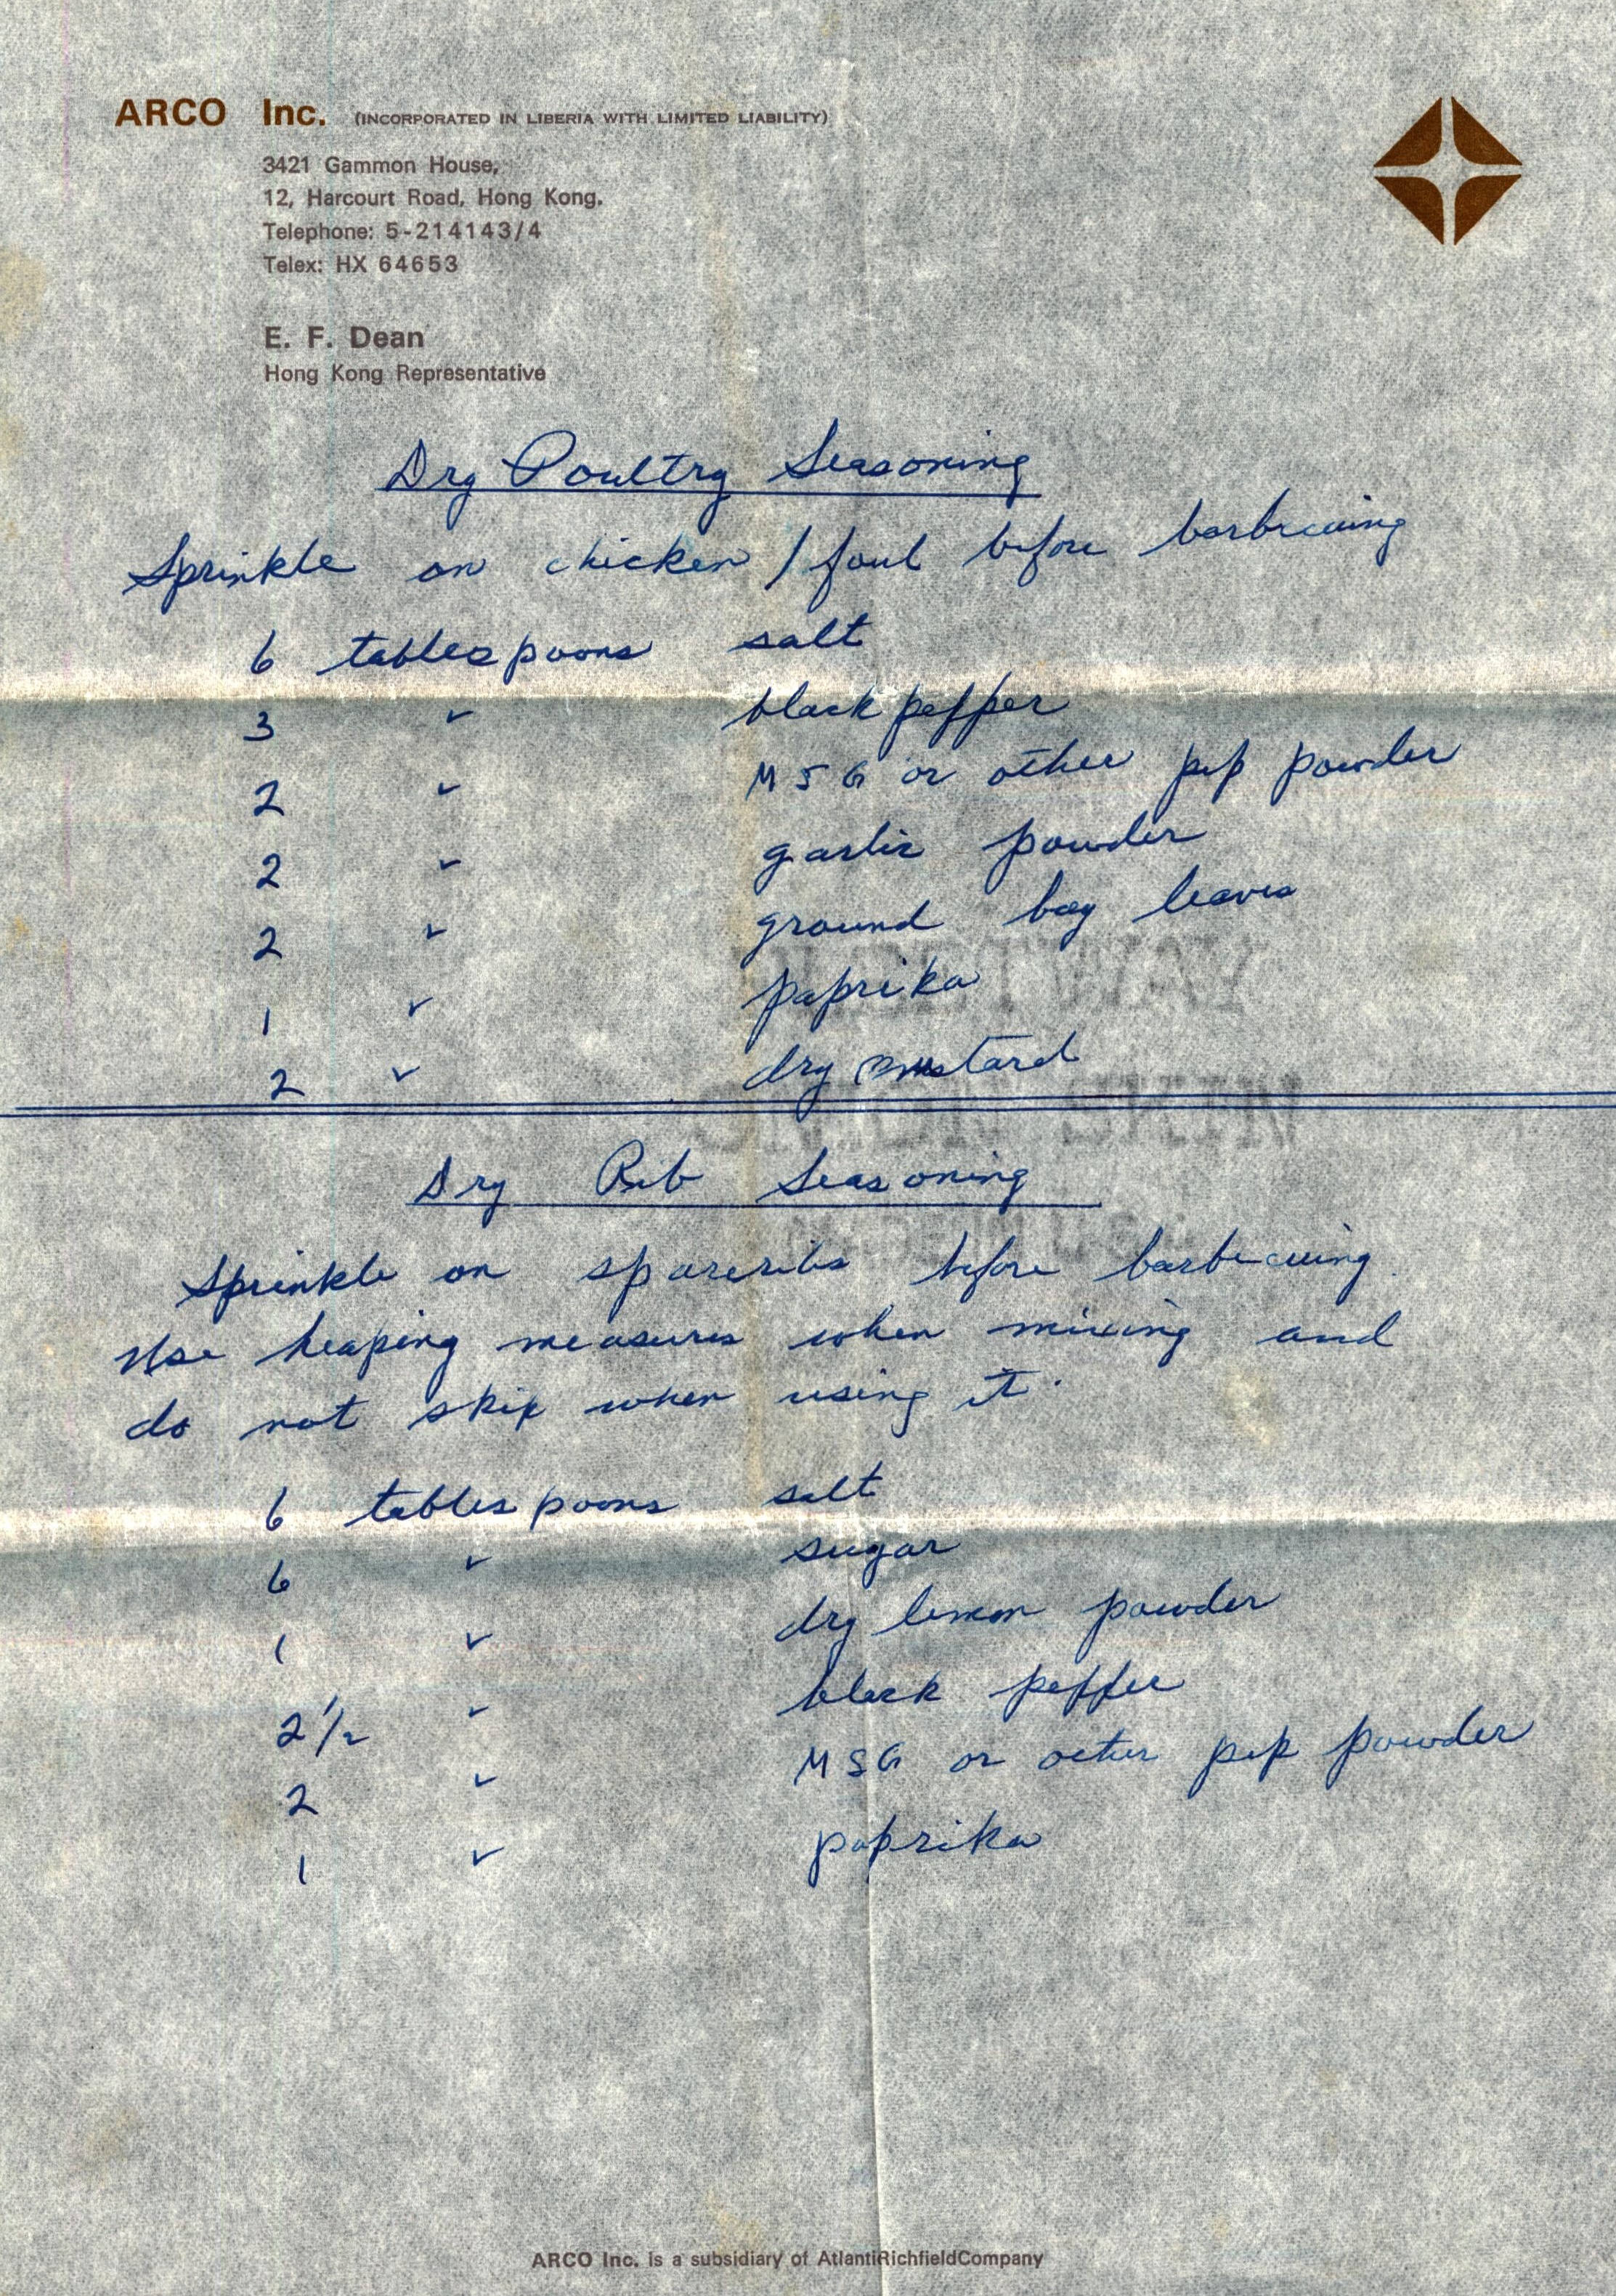 ARCO Inc. (INCORPORATED IN LIBERIA WITH LIMITED LIABILITY)
3421 Gammon House,
12, Harcourt Road, Hong Kong.
Telephone: 5-214143/4
Telex: HX 64653
E. F. Dean
Hong Kong Representative
Dry Poultry Seasoning
Sprinkle on chicken / foul before barbecuing
6 tablespoons salt
3 " black pepper
2 " MSG or other pep powder
2 " garlic powder
2 " ground bay leaves
1 " paprika
2 " dry mustard
Dry Rib Seasoning
Sprinkle on spareribs before barbecuing.
Use heaping measures when mixing and
do not skip when using it.
6 tablespoons salt
6 " sugar
1 " dry lemon powder
2 1/2 " black pepper
2 " MSG or other pep powder
1 " paprika
ARCO Inc. is a subsidiary of AtlantiRichfieldCompany